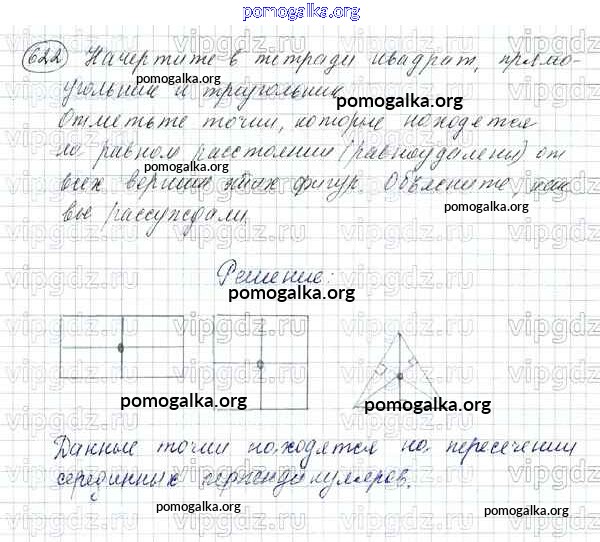 pomogalka.org
622 Начертите в тетради квадрат, прямо-
угольник и треугольник.
pomogalka.org
Отметьте точки, которые находятся
на равном расстоянии (равноудалены) от
pomogalka.org
всех вершин этих фигур. Объясните как
вы рассуждали.
pomogalka.org
Решение:
pomogalka.org
pomogalka.org
pomogalka.org
Данные точки находятся на пересечении
серединных перпендикуляров.
pomogalka.org
pomogalka.org